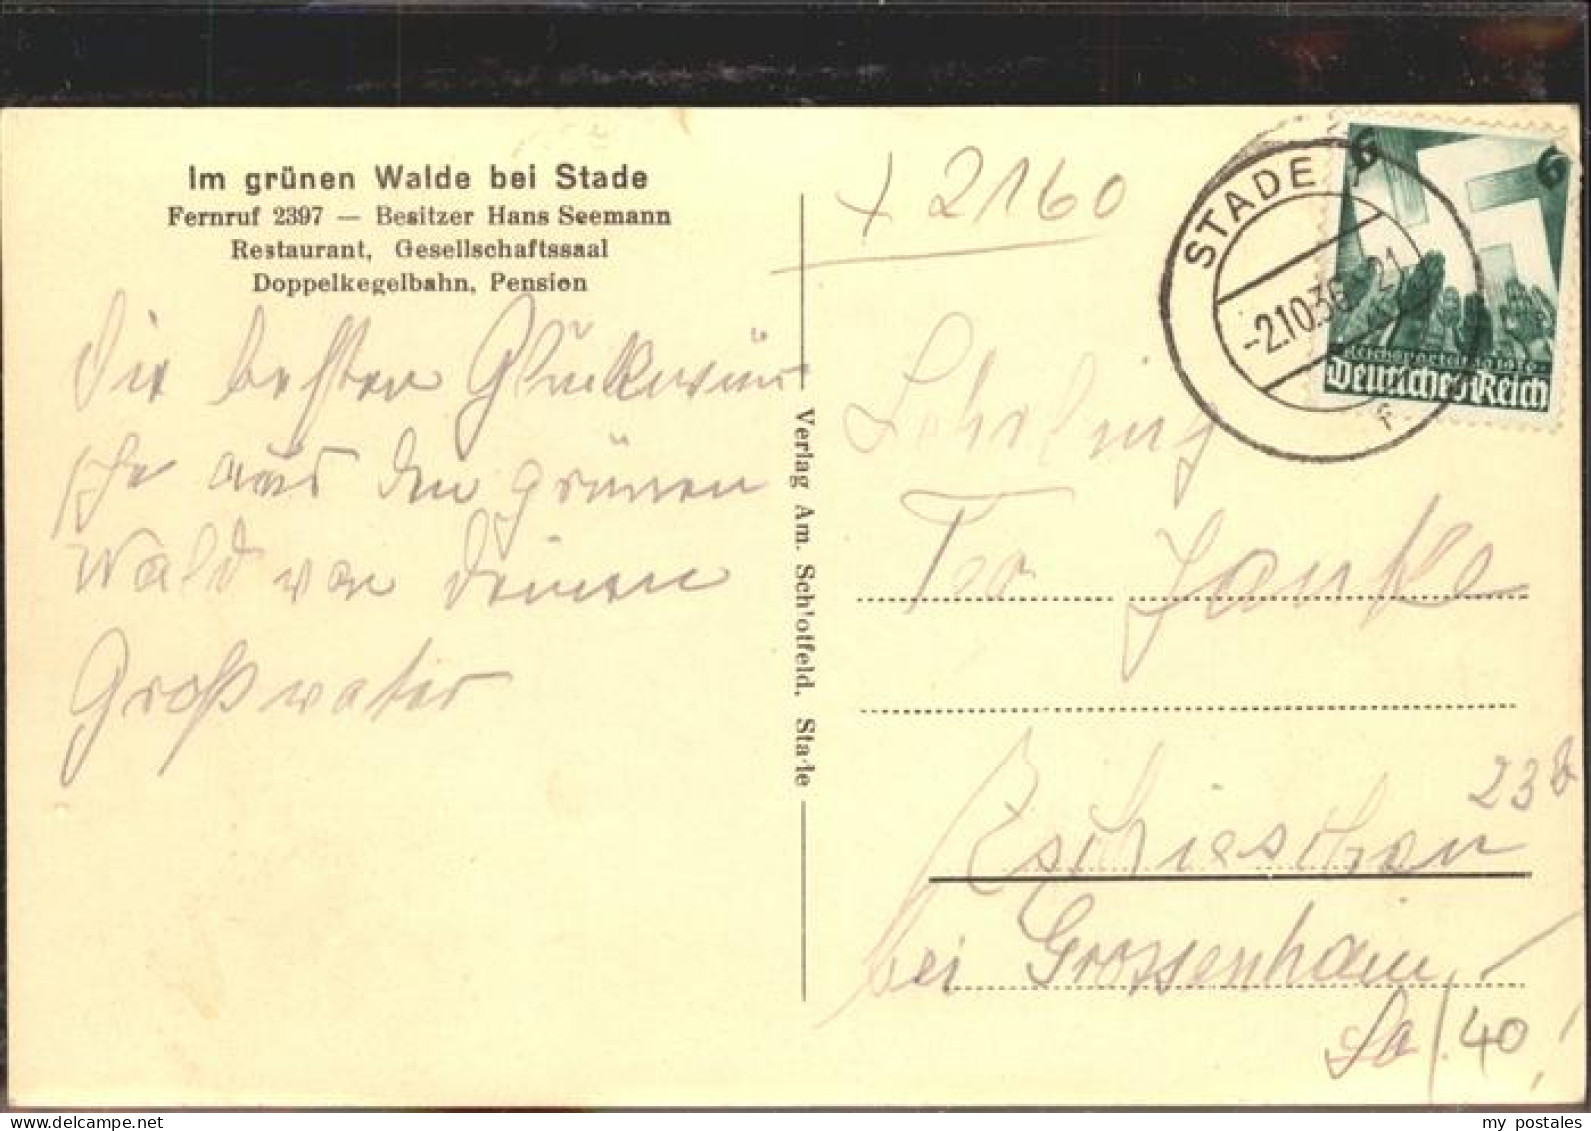 Im grünen Walde bei Stade
Fernruf 2397 — Besitzer Hans Seemann
Restaurant, Gesellschaftssaal
Doppelkegelbahn, Pension
Die besten Glückwün
sche aus den grünen
Wald von Deinen
Großvater
Verlag Am. Schlotfeld, Stade
+ 2160
STADE
-2.10.36. 21
F
6 6
Reichsparteitag 1936
Deutsches Reich
Lehrling
Janke
Zschieschen
23 b
bei Grossenhain
Sa / 40
my postales